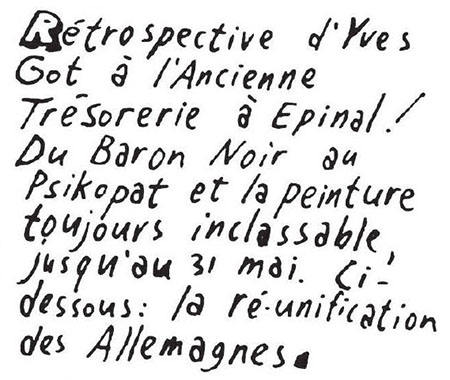 Rétrospective d'Yves
Got à l'Ancienne
Trésorerie à Epinal!
Du Baron Noir au
Psikopat et la peinture
toujours inclassable,
jusqu'au 31 mai. Ci-
dessous: la ré-unification
des Allemagnes.